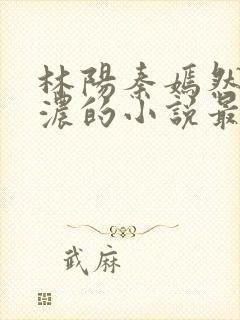 林陽秦嫣然
濃的小説最
武麻